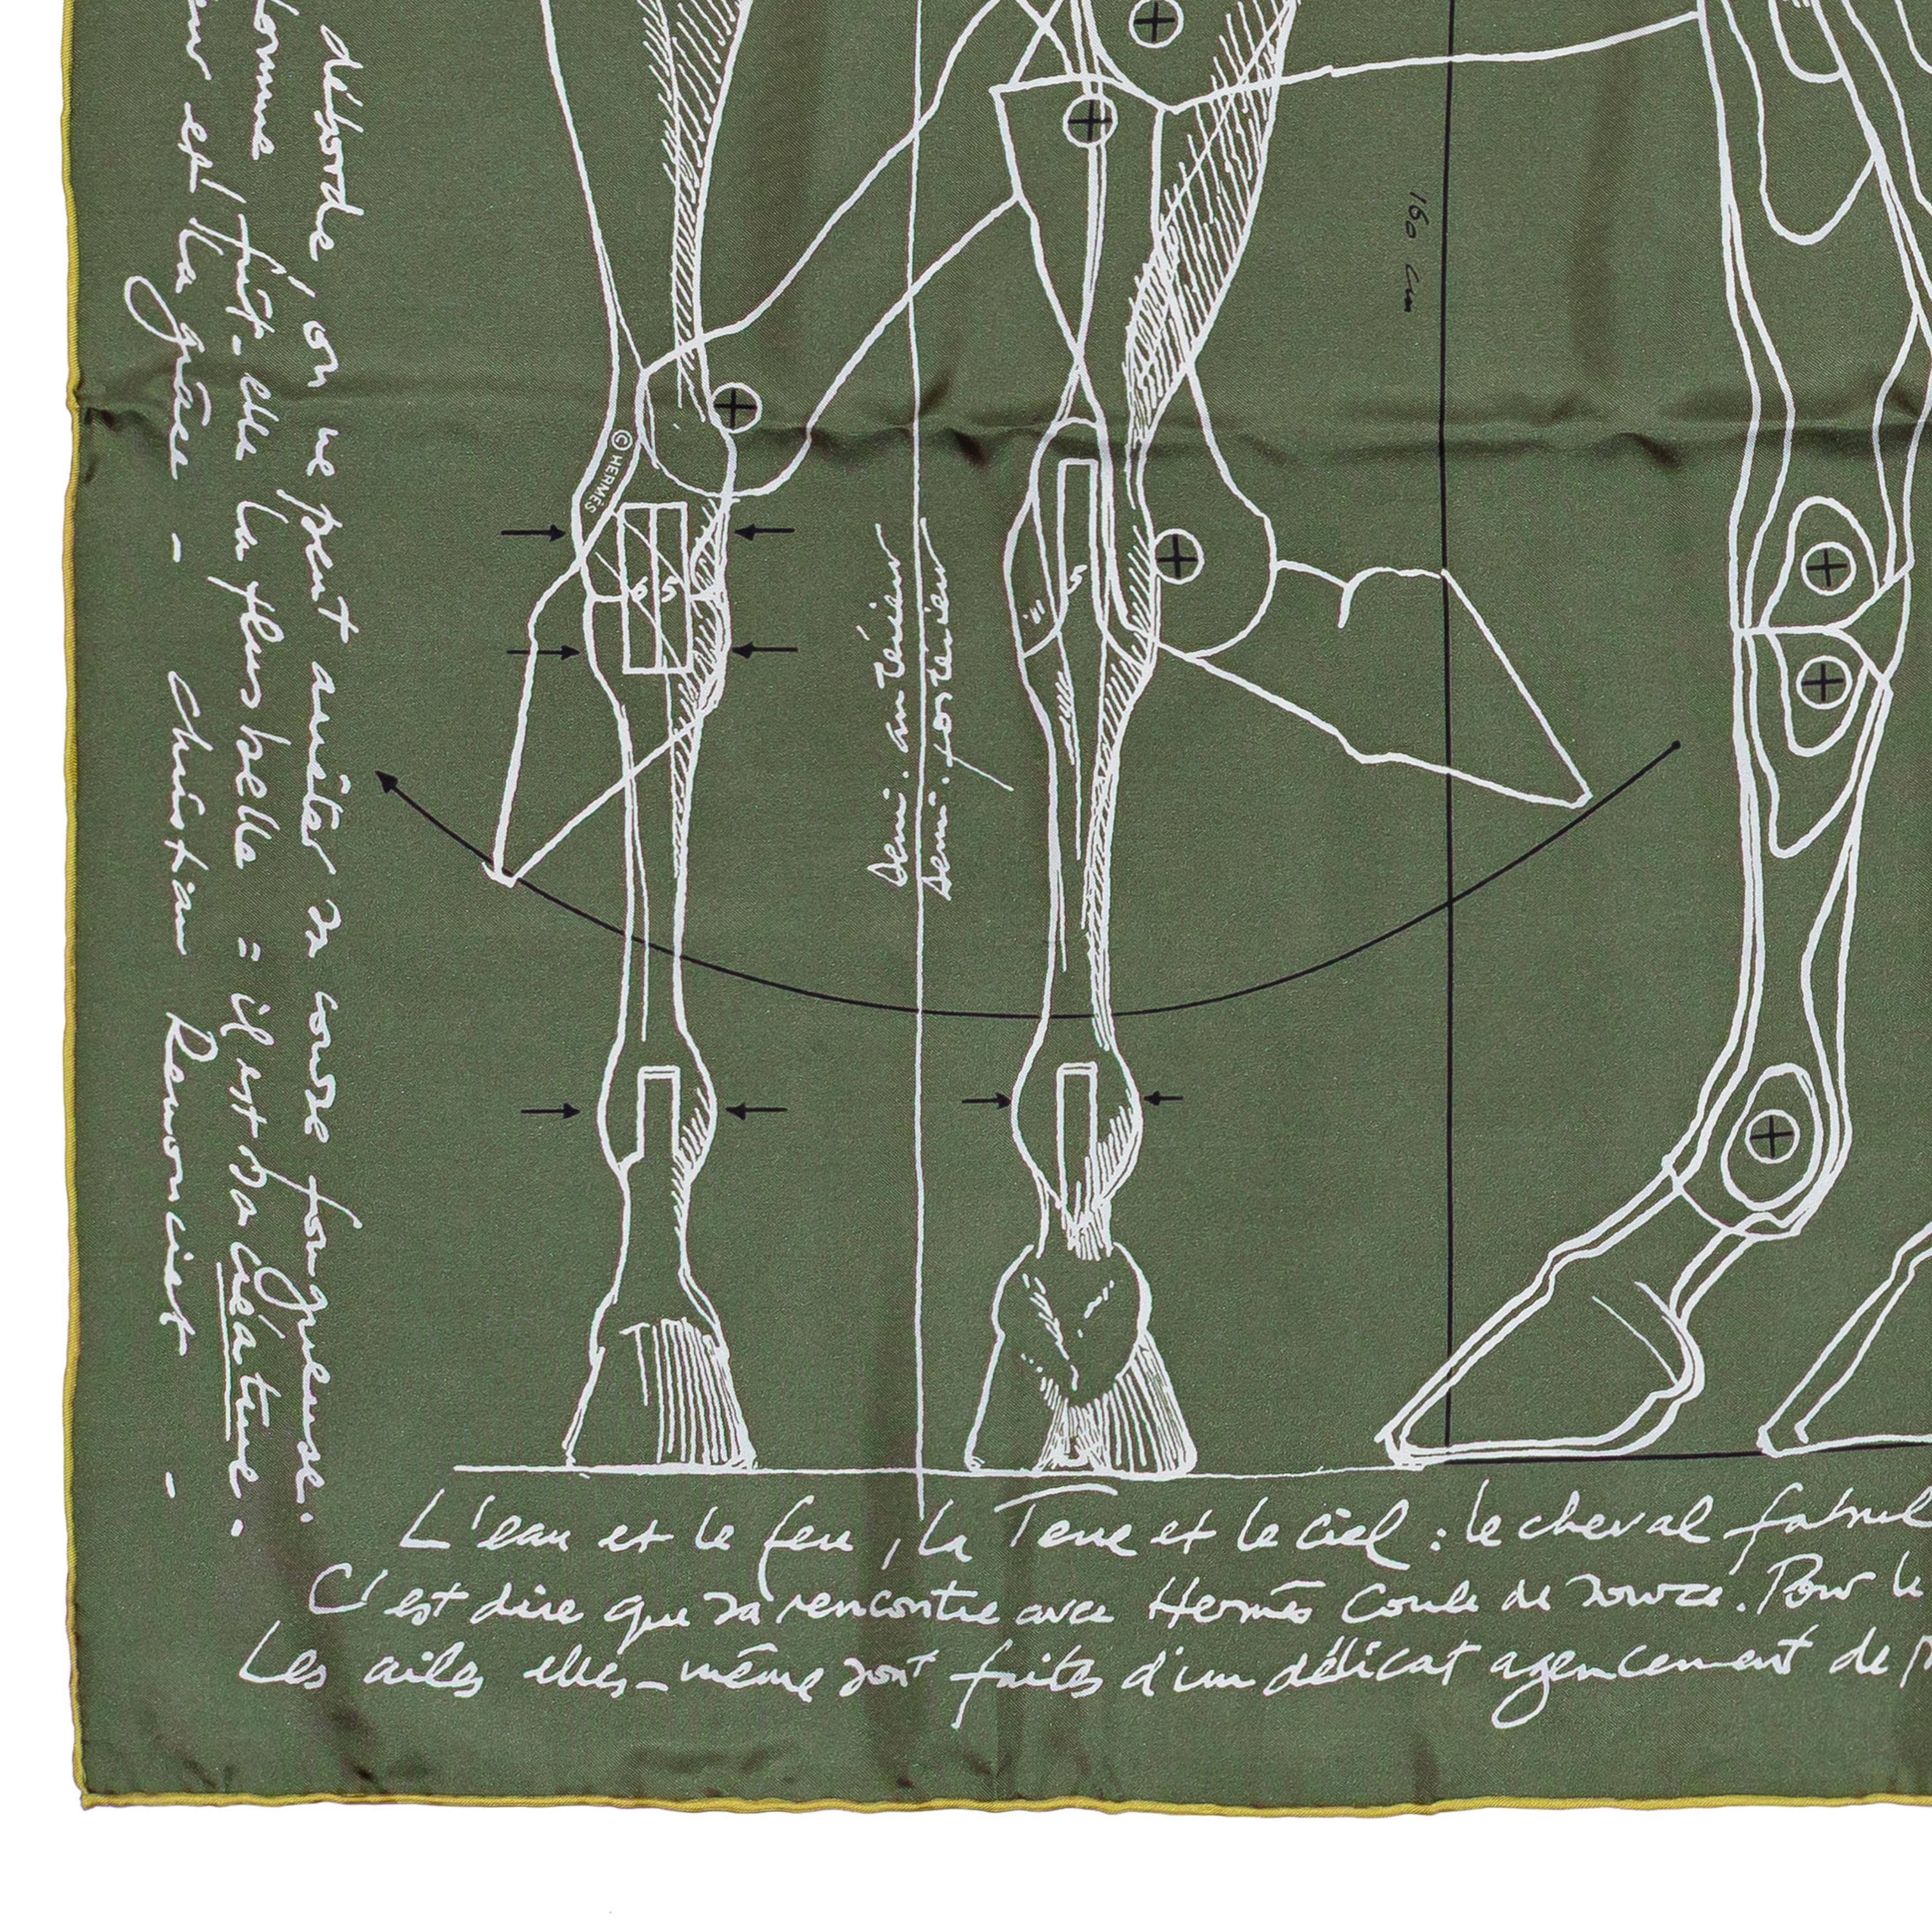 déborde, on ne peut arrêter sa course fougueuse.
fût-elle la plus belle = il est sa créature.
est la grâce - christian Renonciat -
160 cm
© HERMÈS
6,5
5
Demi. antérieur
Demi. postérieur
L'eau et le feu, la Terre et le ciel : le cheval fabul
C'est dire que sa rencontre avec Hermès coule de source. Pour le
Les ailes elles-même sont faites d'un délicat agencement de